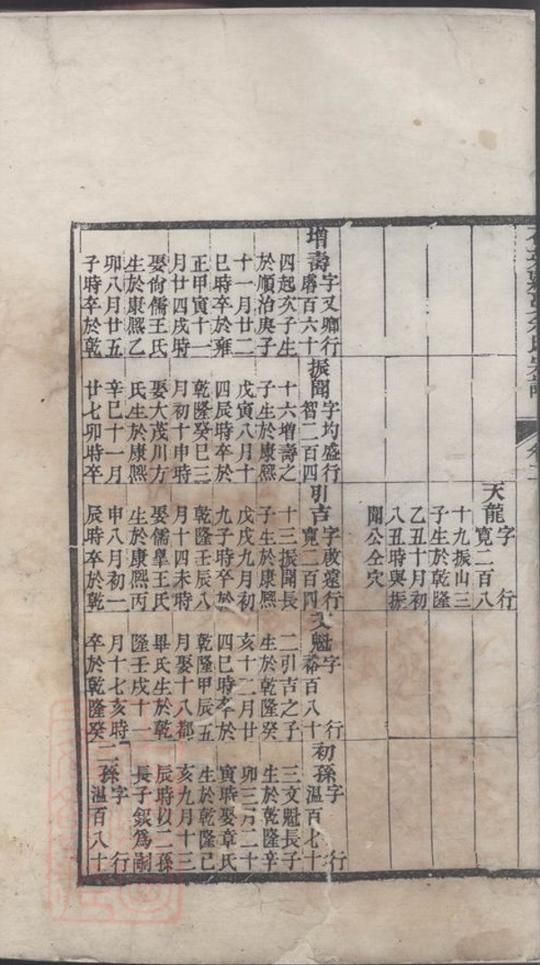 天龍字　行
寬二百八
十九振山三
子生於乾隆
乙丑十月初
八丑時與振
聞公仝穴
增壽字又卿行
睿百六十
四起亥子生
於順治庚子
十一月廿二
巳時卒於雍
正甲寅十一
月廿四戌時
娶儒王氏
生於康熙乙
卯八月廿五
子時卒於乾
振聞字均盛行
智二百四
十六增壽之
子生於康熙
戊寅八月十
四辰時卒於
乾隆癸巳三
月初十申時
娶大茂川方
氏生於康熙
辛巳十一月
廿七卯時卒
引吉字行
寬二百四
十三振聞長
子生於康熙
戊戌九月初
九子時卒於
乾隆壬辰八
月十四未時
娶儒王氏
生於康熙丙
申八月初一
辰時卒於乾
文魁字　行
裕百八十
二引吉之子
生於乾隆癸
亥十二月廿
四巳時卒於
乾隆甲辰五
月娶十八都
畢氏生於乾
隆壬戌十一
月十七亥時
卒於乾隆癸
初孫字　行
溫百七十
三文魁長子
生於乾隆辛
卯三月二十
寅時娶章氏
生於乾隆己
亥九月十三
辰時以二孫
長子銀爲嗣
二孫字　行
溫百八十